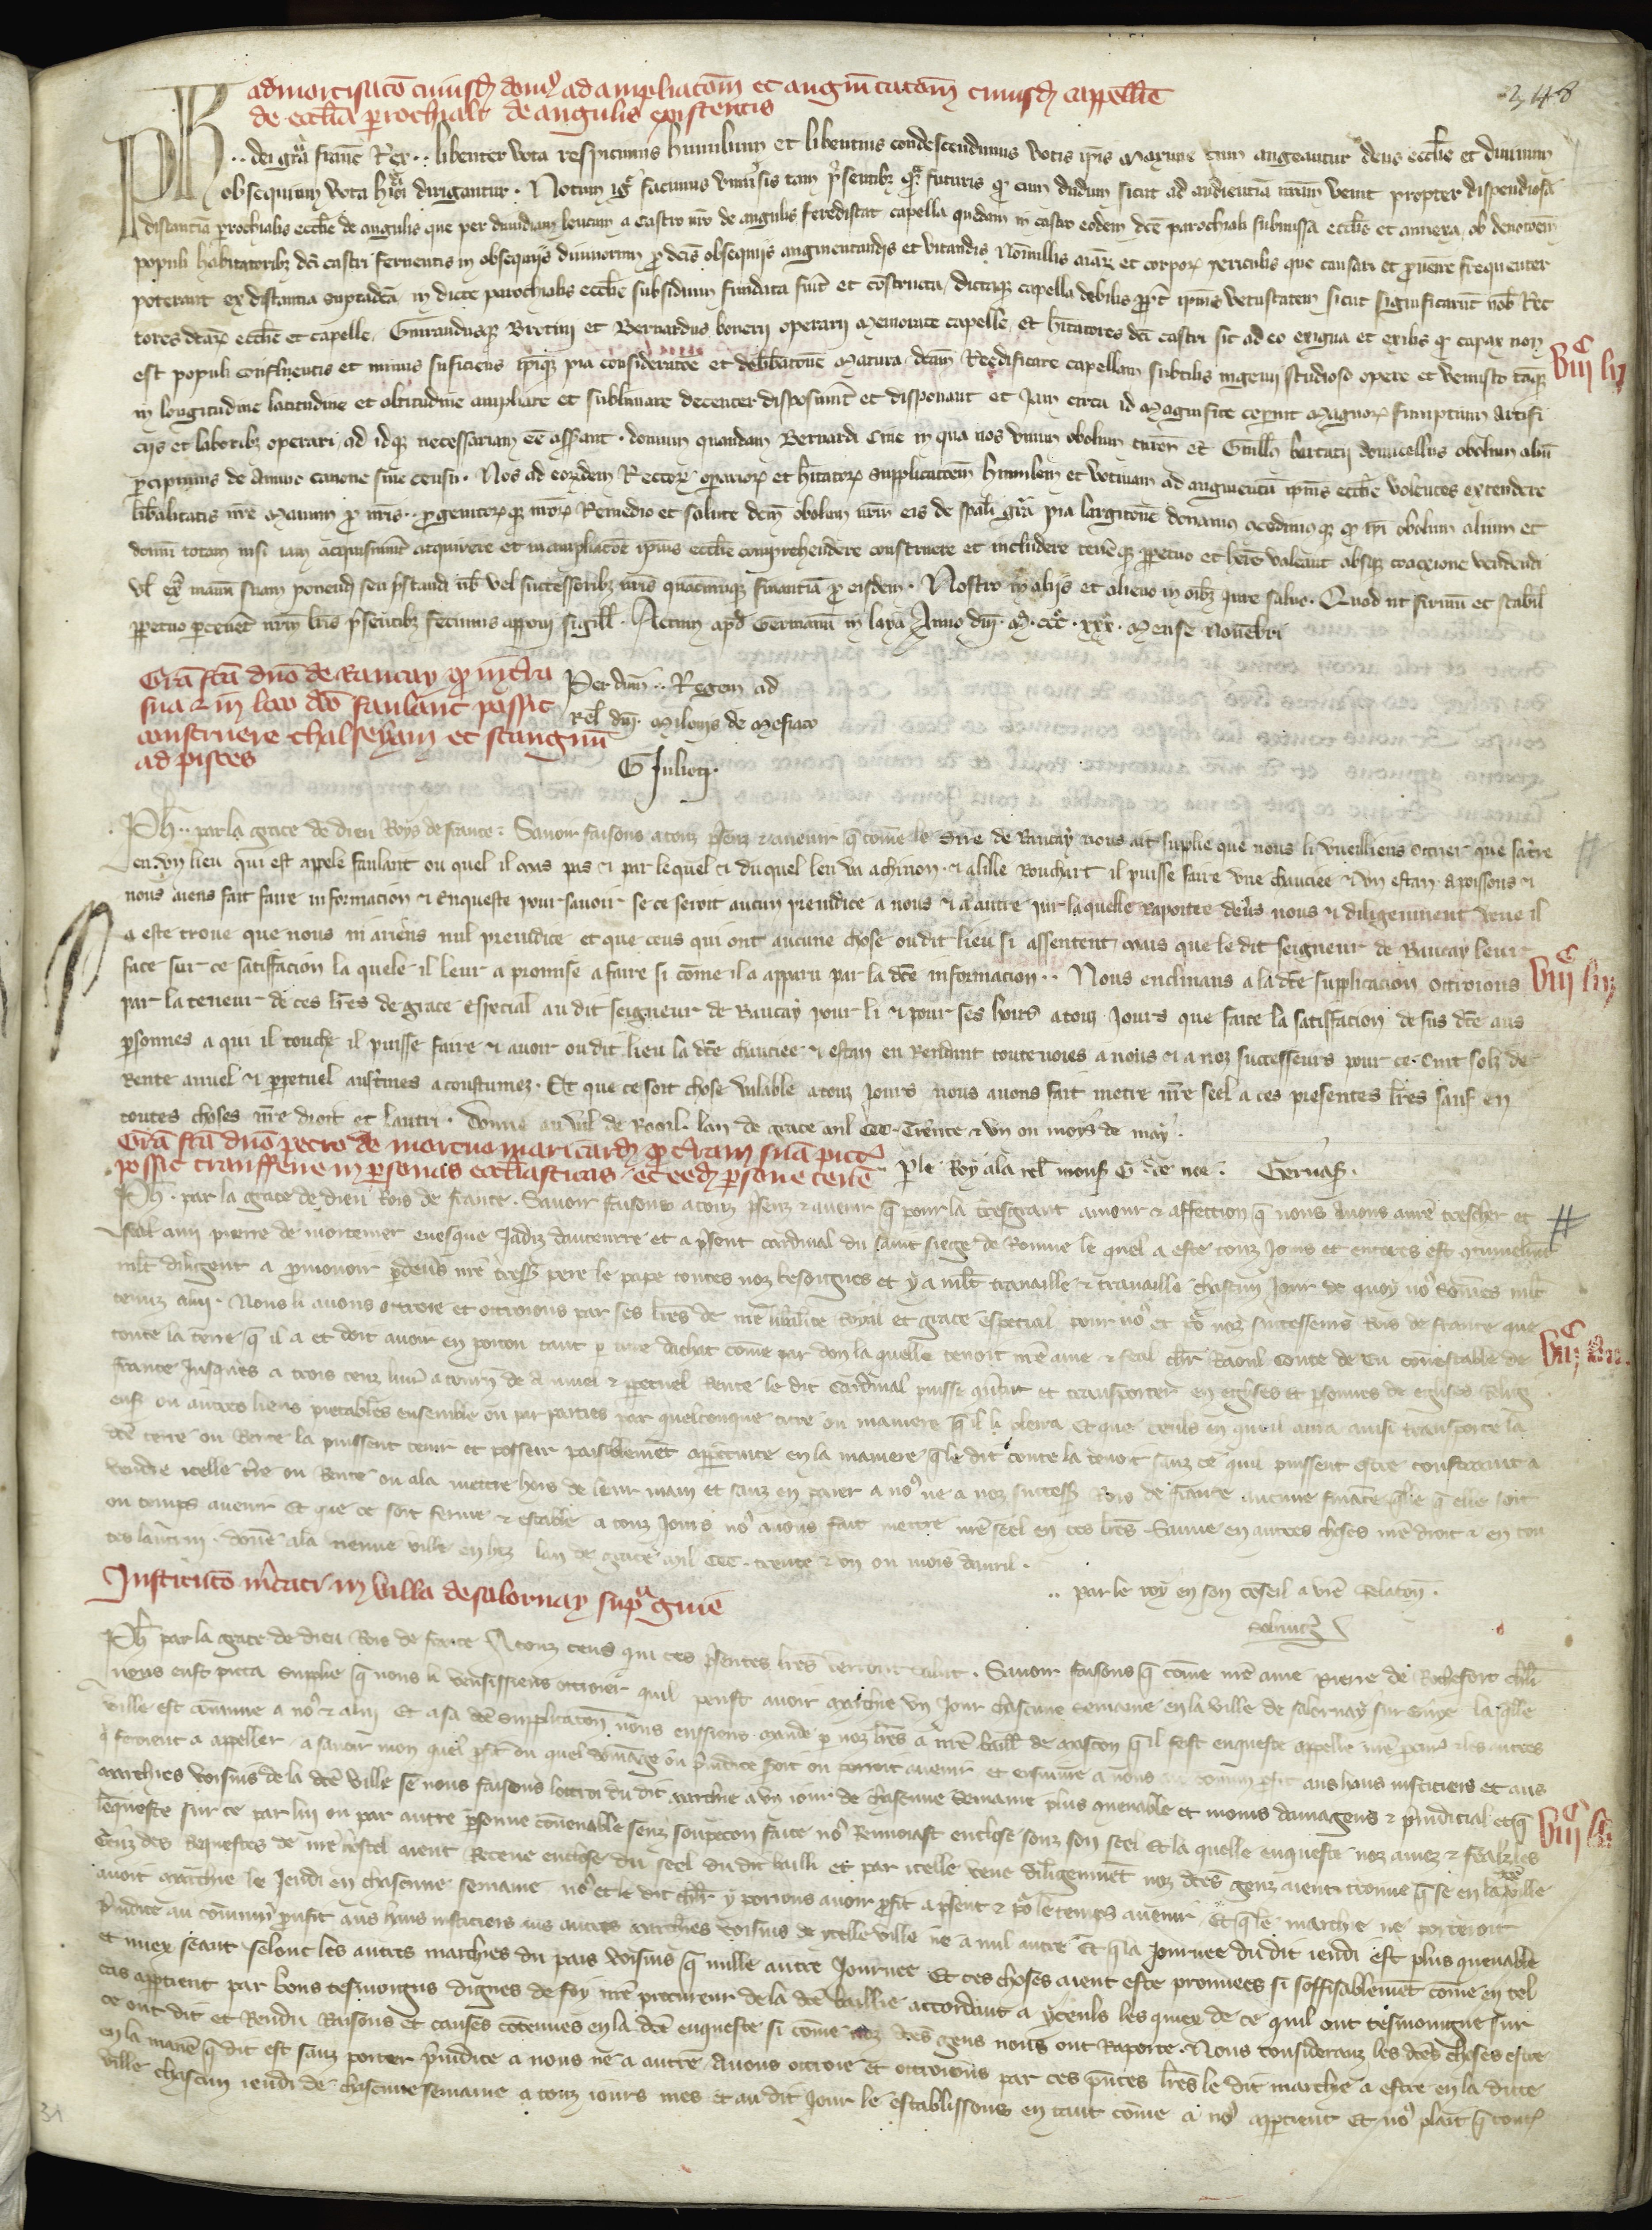 admortisatō cuiusdā dom⁹ ad ampliatōm et augm̄tatōm cuiusdā cappelle
de ecclia p̄rochiali de angulis existentis
348
Ph .. dei grā franc̄ Rex .. libenter vota respicimus humilium et libentius condescendimus votis ipis maxime cum augeantur deus ecclie et diuinum
obsequium vota dirigantur . Notum igr facimus vniusis tam p̄sentibz q̄ futuris q cum dudum sicut ad audienciā nrām venit propter dispendiosā
distanciā p̄rochialis ecclie de angulis que per dimidiam leucam a castro nr̄o de angulis fere distat capella quedam in castro eodem dc̄e parochiali submissa ecclie et annexa , ob deuotoēm
populi habitatoribz dc̄i castri feruentis in obsequijs diuinorum p dc̄is obsequijs augmentandis et vitandis Nōnullis aīar et corpor periculis que causari et p̄uenire frequenter
poterant ex distantia supradc̄a in dicte parochialis ecclie subsidium fundata fuit et cōstructa , dictaq capella debilis ppt̄ ipius vetustatem sicut significarūt nob Rec
tores dc̄ar ecclie et capelle , Guiraudusq Brotini et Bernardus boneti operarij memorate capelle , et hītatores dc̄i castri sit ad eo exigua et exilis q capax non
est populi confluentis et minus sufficiens ipiq pia consideratōe et delibatōne matura , dc̄am Reedificare capellam subtilis ingenij studioso opere et venusto eāq
in longitudine latitudine et altitudine ampliare et sublimare decenter disposuerūt et disponant et Jam circa id magnifice ceperūt magnor sumptuum artifi
cijs et laboribz operari , ad idq necessariam eē asserant . domum quandam Bernardi Cine in qua nos vnum obolum turon et Guills bartutij domicellus obolum aliū
p̄cipimus de annuo canone siue censu . Nos ad eordem Rector operarior et hītator supplicatōem humilem et votiuam ad augmentū ipius ecclie volentes extendere
liberalitatis nr̄e manum p nr̄is . p̄genitorq nror Remedio et salute dc̄m obolum nrm̄ eis de spāli grā pia largitōne donamus concedimusq q ipi obolum alium et
domū totam nisi iam acquisiuerūt acquirere et in ampliatōe ipius ecclie comprehendere construere et includere tenēq ppetuo et hēre valeant absq coactione vendendi
vl extra manū suam ponendi seu p̄standi nob vel successoribz nris quacumq financiā p eisdem . Nostro in alijs et alieno in oībz iure saluo . Quod ut firmū et stabil
ppetuo p̄seueret nrm̄ lris p̄sentibz fecimus apponi sigill . Actum apd Germanū in laya Anno dni . M . ccc . xxx . mense Nouēbri
Grā fcā dno de Baucay q in t̄ra
sua z in loco dc̄o faulant possit
construere chalseyam et stangnū
ad pisces
Per dnm̄ .. Regem ad
rel dni . Milonis de Mesiaco
G Julioti .
viij^c lij
Ph .. par la grace de dieu Roys de france : Sauoir faisons a touz p̄senz z auenir q come le sire de Baucay nous ait suplie que nous li vueilliens ottrier que sa t̄re
en vn lieu qui est apele faulant ou quel il mas pas et par lequel et duquel len va a chinon . et a lille Bouchart il puisse faire vne chauciee et vn estan . a poissons et
nous aiens fait faire informacion et Enqueste pour sauoir se ce seroit aucun preiudice a nous et a autre par laquelle raportee deuers nous et diligenment veue il
a este trouue que nous ni ariens nul preiudice et que ceus qui ont aucune chose oudit lieu si assentent mais que le dit seigneur de Baucay leur
face sur ce satiffacion la quele il leur a promise a faire si come il a apparu par la dc̄e informacion .. Nous enclinans a la dc̄e supplicacion ottroions
par la teneur de ces lr̄es de grace Especial au dit seigneur de Baucay pour li et pour ses hoirs a touz Jours que faite la satiffacion de sus dc̄e aus
personnes a qui il touche il puisse faire et auoir oudit lieu la dc̄e chauciee et estan en Rendant toutevoies a nous et a noz successeurs pour ce . Cint solz de
Rente annuel et perpetuel aus t̄mes acoustumez . Et que ce soit chose valable a touz Jours nous auons fait metre nr̄e seel a ces presentes lr̄es sauf en
toutes choses nr̄e droit et lautri . donne au Val de Rooil . lan de grace mil CCC . Trente et vn ou moys de may .
viij^c liij
Grā fcā dno petro de mortuo mari card q t̄ram suā pict
possit transferre in p̄sonas ecclīasticas et eed p̄sone tenē
P le Roy a la rel mons G Gernas .
Ph . par la grace de dieu Rois de france . Sauoir faisons a touz p̄senz z auenir q pour la tresgrant amour z affection q nous auons a nrē trescher et
feal ami pierre de mortemer euesque Jadiz daucerre et a p̄sent cardinal du saint siege de Romme le quel a este touz Jours et encores est
mlt diligent a p̄mouoir p̄deus nr̄e tress pere le pape toutes noz besoignes et y a mlt trauaille et trauaille chascun Jour de quoy no⁹ somes mlt
tenuz a lui . Nous li auons ottroie et ottroions par ses lr̄es de nr̄e Roial et grace especial pour no⁹ et po⁹ noz successeurs Rois de france que
toute la terre q il a et doit auoir en poitou tant p titre dachat come par don la quelle tenoit nr̄e ame et feal chlr Raoul Conte de Eu conestable de
france Jusques a trois cenz liur a tourn de annuel z ppetuel Rente le dit Cardinal puisse et transporter en eglises et personnes de eglises Relig
euses ou autres liens pitables ensemble ou par parties par quelconque titre ou maniere q il li plera Et que ceuls en qui il aura ainsi transporte la
dc̄e terre ou Rente la puissent tenir et posseir paisiblement a ppetuite en la maniere q le dit conte la tenoit sanz ce quil puissent estre contrains a
vendre icelle t̄re ou Rente ou a la mettre hors de leur main et sanz en paier a no⁹ ne a noz success Rois de france aucune finance q̄lle q elle soit
ou temps auenir Et que ce soit ferme z estable a touz Jours no⁹ auons fait mettre nr̄e seel en ces lr̄es . Sauue en autres choses nr̄e droit z en tou
tes lautrui . donē a la nenue ville en hez lan de grace mil CCC . trente z vn ou mois dauril .
Institutō m̄cati in villa de salornay supa guiē
.. par le roy en son cōseil a vr̄e Relatōn .
Ph par la grace de dieu Rois de france A touz ceus qui ces p̄sentes lr̄es verront salut . Sauoir faisons q come nr̄e ame Pierre de Rochefort chlr
nous eust pieca supplie q nous li vousissiens ottroier quil peust auoir marchie vn Jour chascune semaine en la ville de salornay sur Guye la q̄lle
ville est comune a no⁹ z a lui Et a sa dc̄e supplicatōn nous eussiens mande p noz lr̄es a nr̄e baill de mascon q il feist enqueste appelle nr̄e procur z les autres
q feroient a appeller / a sauoir mon quel p̄fit ou quel dōmage ou p̄iudice soit ou porroit auenir et ensuiure a nous au comun p̄fit aus haus iusticiers et aus
marchies voisins de la dc̄e ville se nous faisons lottroi du dit marchie a vn iour de chascune semaine plus auenable et moins damageus z p̄iudicial etq
lenqueste sur ce par lui ou par autre p̄sonne couenable senz soupecon faite no⁹ Renuoiast enclose souz son seel Et la quelle enqueste noz amez z feaulz les
Genz des Requestes de nr̄e hostel aient Receue enclose du seel du dit bailli et par icelle veue diligenmēt noz dc̄es genz aient trouue q se en la dc̄e ville
auoit marchie le Jeudi en chascune semaine no⁹ et le dit chlr y porions auoir profit a p̄sent z po⁹ le temps auenir / Et q le marchie ne porteroit
p̄iudice au comun p̄ufit aus haus iusticiers aus autres marchies voisins de ycelle ville ne a nul autre Et q la Journee du dit ieudi est plus quenable
et miex seant selonc les autres marchies du pais voisins q nulle autre Journee Et ces choses aient este prouuees si soffisablemēt come en tel
cas appartient par bons tesmoings dignes de foy nr̄e procureur de la dc̄e baillie accordant a yceuls les quiex de ce quil ont tesmoingne sur
ce ont dit et Rendu Raisons et causes cōtenues en la dc̄e enqueste si come noz dc̄es gens nous ont Raporte . Nous considerans les dc̄es choses estre
en la manē q dit est sanz porter p̄iudice a nous ne a autre Auons ottroie et ottroions par ces p̄ntes lr̄es le dit marchie a estre en la dicte
ville chascun ieudi de chascune semaine a touz iours mes et au dit Jour le establissons en tant come a no⁹ appartient Et no⁹ plait q touz
31